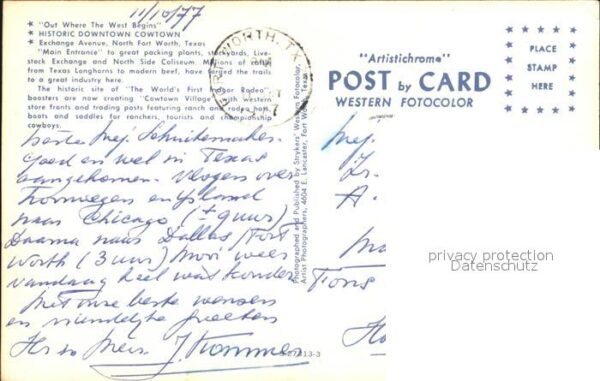 11/10/77
★ "Out Where The West Begins"
★ HISTORIC DOWNTOWN COWTOWN
★ Exchange Avenue, North Fort Worth, Texas
"Main Entrance" to great packing plants, stockyards, Live-
stock Exchange and North Side Coliseum. Millions of cattle
from Texas Longhorns to modern beef, have forged the trails
to a great industry.
The historic site of "The World's First Indoor Rodeo"
boosters are now creating "Cowtown Village" with western
store fronts and trading posts featuring ranch and rodeo hats,
boots and saddles for ranchers, tourists and championship
cowboys.
FORT WORTH, TX
"Artistichrome"
POST by CARD
WESTERN FOTOCOLOR
PLACE
STAMP
HERE
Photographed and Published by Strykers' Western Fotocolor,
Artist Photographers, 4604 E. Lancaster, Fort Worth, Texas
Beste Mej. Schuitemaker
Goed en wel in Texas
aangekomen. Vlogen over
Noorwegen en IJsland
naar Chicago (± 9 uur)
Daarna naar Dallas/Fort
Worth (3 uur) Mooi weer
vandaag heel wat
Met onze beste wensen
en vriendelijke groeten
Hr en Mevr. J. Kommer
Mej.
A.
privacy protection
Datenschutz